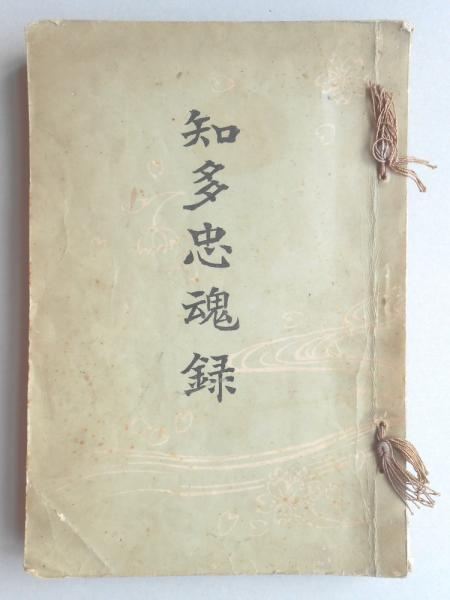 知多忠魂録